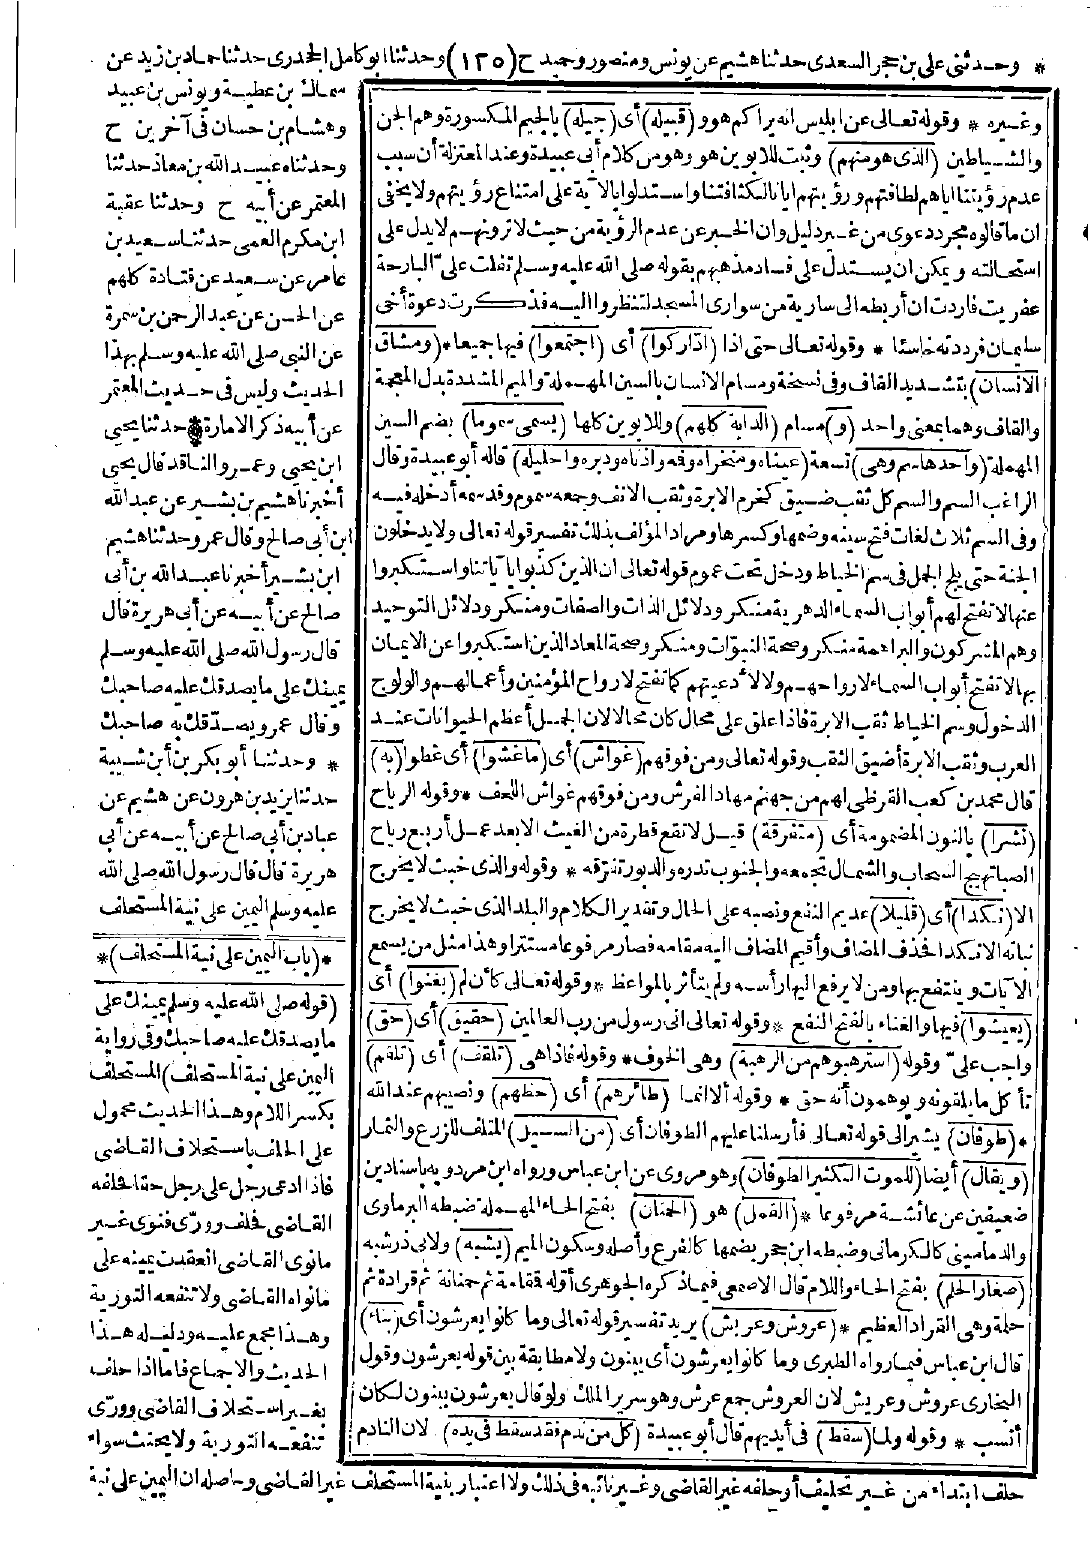 * وحدثني علي بن حجر السعدي حدثنا هشيم عن يونس ومنصور وحميد ح (١٢٥) وحدثنا أبو كامل الجحدري حدثنا حماد بن زيد عن
سماك بن عطية ويونس بن عبيد
وهشام بن حسان في آخرين ح
وحدثناه عبيد الله بن معاذ حدثنا
المعتمر عن أبيه ح وحدثنا عقبة
ابن مكرم العمي حدثنا سعيد بن
عامر عن سعيد عن قتادة كلهم
عن الحسن عن عبد الرحمن بن سمرة
عن النبي صلى الله عليه وسلم بهذا
الحديث وليس في حديث المعتمر
عن أبيه ذكر الامارة * حدثنا يحيى
ابن يحيى وعمرو الناقد قال يحيى
أخبرنا هشيم بن بشير عن عبد الله
ابن أبي صالح وقال عمرو حدثنا هشيم
ابن بشير أخبرنا عبد الله بن أبي
صالح عن أبيه عن أبي هريرة قال
قال رسول الله صلى الله عليه وسلم
يمينك على ما يصدقك عليه صاحبك
وقال عمرو يصدقك به صاحبك
* وحدثنا أبو بكر بن أبي شيبة
حدثنا يزيد بن هرون عن هشيم عن
عباد بن أبي صالح عن أبيه عن أبي
هريرة قال قال رسول الله صلى الله
عليه وسلم اليمين على نية المستحلف
*(باب اليمين على نية المستحلف)*
(قوله صلى الله عليه وسلم يمينك على
ما يصدقك عليه صاحبك وفي رواية
اليمين على نية المستحلف) المستحلف
بكسر اللام وهذا الحديث محمول
على الحلف باستحلاف القاضي
فاذا ادعى رجل على رجل حقا فحلفه
القاضي فحلف وورى فنوى غير
ما نوى القاضي انعقدت يمينه على
ما نواه القاضي ولا تنفعه التورية
وهذا مجمع عليه ودليله هذا
الحديث والاجماع فاما اذا حلف
بغير استحلاف القاضي وورى
تنفعه التورية ولا يحنث سواء
حلف ابتداء من غير تحليف أو حلفه غير القاضي وغير نائبه في ذلك ولا اعتبار بنية المستحلف غير القاضي وحاصله ان اليمين على نية
وغيره * وقوله تعالى عن ابليس انه يراكم هو و (قبيله) أى (جيله) بالجيم المكسورة وهم الجن
والشياطين (الذى هو منهم) وثبت للابوين هو وهو من كلام أبي عبيدة وعند المعتزلة أن سبب
عدم رؤيتنا اياهم لطافتهم ورؤيتهم ايانا لكثافتنا واستدلوا بالآية على امتناع رؤيتهم ولا يخفى
ان ما قالوه مجرد دعوى من غير دليل وان الخبر عن عدم الرؤية من حيث لا ترونهم لا يدل على
استحالته ويمكن ان يستدل على فساد مذهبهم بقوله صلى الله عليه وسلم تفلت علىّ البارحة
عفريت فاردت ان أربطه الى سارية من سوارى المسجد لتنظروا اليه فذكرت دعوة أخى
سليمان فرددته خاسئا * وقوله تعالى حتى اذا (ادّاركوا) أى (اجتمعوا) فيها جميعا *(ومشاق
الانسان) بتشديد القاف وفى نسخة ومسام الانسان بالسين المهملة والميم المشددة بدل المعجمة
والقاف وهما بمعنى واحد (و) مسام (الدابة كلهم) وللابوين كلها (يسمى سموما) بضم السين
المهملة (واحدها سم وهى) تسعة (عيناه ومنخراه وفه واذناه ودبره واحليله) قاله أبو عبيدة وقال
الراغب السم والسم كل ثقب ضيق كخرم الابرة وثقب الانف وجمعه سموم وقد سمه أدخله فيه
وفى السم ثلاث لغات فتح سينه وضمها وكسرها ومراد المؤلف بذلك تفسير قوله تعالى ولا يدخلون
الجنة حتى يلج الجمل فى سم الخياط ودخل تحت عموم قوله تعالى ان الذين كذبوا بآياتنا واستكبروا
عنها لا تفتح لهم أبواب السماء الدهرية منكرو دلائل الذات والصفات ومنكرو دلائل التوحيد
وهم المشركون والبراهمة منكرو صحة النبوّات ومنكرو صحة المعاد الذين استكبروا عن الايمان
بها لا تفتح أبواب السماء لارواحهم ولا لأدعيتهم كما تفتح لارواح المؤمنين وأعمالهم والولوج
الدخول وسم الخياط ثقب الابرة فاذا علق على محال كان محالا لان الجمل أعظم الحيوانات عند
العرب وثقب الابرة أضيق الثقب وقوله تعالى ومن فوقهم (غواش) أى (ما غشوا) أى غطوا (به)
قال محمد بن كعب القرظى لهم من جهنم مهاد الفرش ومن فوقهم غواش اللحف * وقوله الرياح
(نشرا) بالنون المضمومة أى (متفرقة) قيل لا تقع قطرة من الغيث الا بعد عمل أربع رياح
الصبا تهيج السحاب والشمال تجمعه والجنوب تدره والدبور تفرقه * وقوله والذى خبث لا يخرج
الا (نكدا) أى (قليلا) عديم النفع ونصبه على الحال وتقدير الكلام والبلد الذى خبث لا يخرج
نباته الا نكدا فحذف المضاف وأقيم المضاف اليه مقامه فصار مرفوعا مستترا وهذا مثل من يسمع
الآيات وينتفع بها ومن لا يرفع اليها رأسه ولم يتأثر بالمواعظ * وقوله تعالى كأن لم (يغنوا) أى
(يعيشوا) فيها والغناء بالفتح النفع * وقوله تعالى انى رسول من رب العالمين (حقيق) أى (حق)
واجب علىّ وقوله (استرهبوهم من الرهبة) وهى الخوف * وقوله فاذا هى (تلقف) أى (تلقم)
تأكل ما يلقونه ويوهمون أنه حق * وقوله ألا انما (طائرهم) أى (حظهم) ونصيبهم عند الله
*(طوفان) يشير الى قوله تعالى فأرسلنا عليهم الطوفان أى (من السيل) المتلف للزرع والثمار
(ويقال) أيضا (للموت الكثير الطوفان) وهو مروى عن ابن عباس ورواه ابن مردويه باسنادين
ضعيفين عن عائشة مرفوعا *(القمل) هو (الحمنان) بفتح الحاء المهملة ضبطه البرماوى
والدمامينى كالكرمانى وضبطه ابن حجر بضمها كالفرع وأصله وسكون الميم (يشبه) ولابى ذر شبه
(صغار الحلم) بفتح الحاء واللام قال الاصمعى فيما ذكره الجوهرى أوله قمقامة ثم حمنانة ثم قرادة ثم
حلمة وهى القراد العظيم *(عروش وعريش) يريد تفسير قوله تعالى وما كانوا يعرشون أى (بناء)
قال ابن عباس فيما رواه الطبرى وما كانوا يعرشون أى يبنون ولا مطابقة بين قوله يعرشون وقول
البخارى عروش وعريش لان العروش جمع عرش وهو سرير الملك ولو قال يعرشون يبنون لكان
أنسب * وقوله ولما (سقط) فى أيديهم قال أبو عبيدة (كل من ندم فقد سقط فى يده) لان النادم